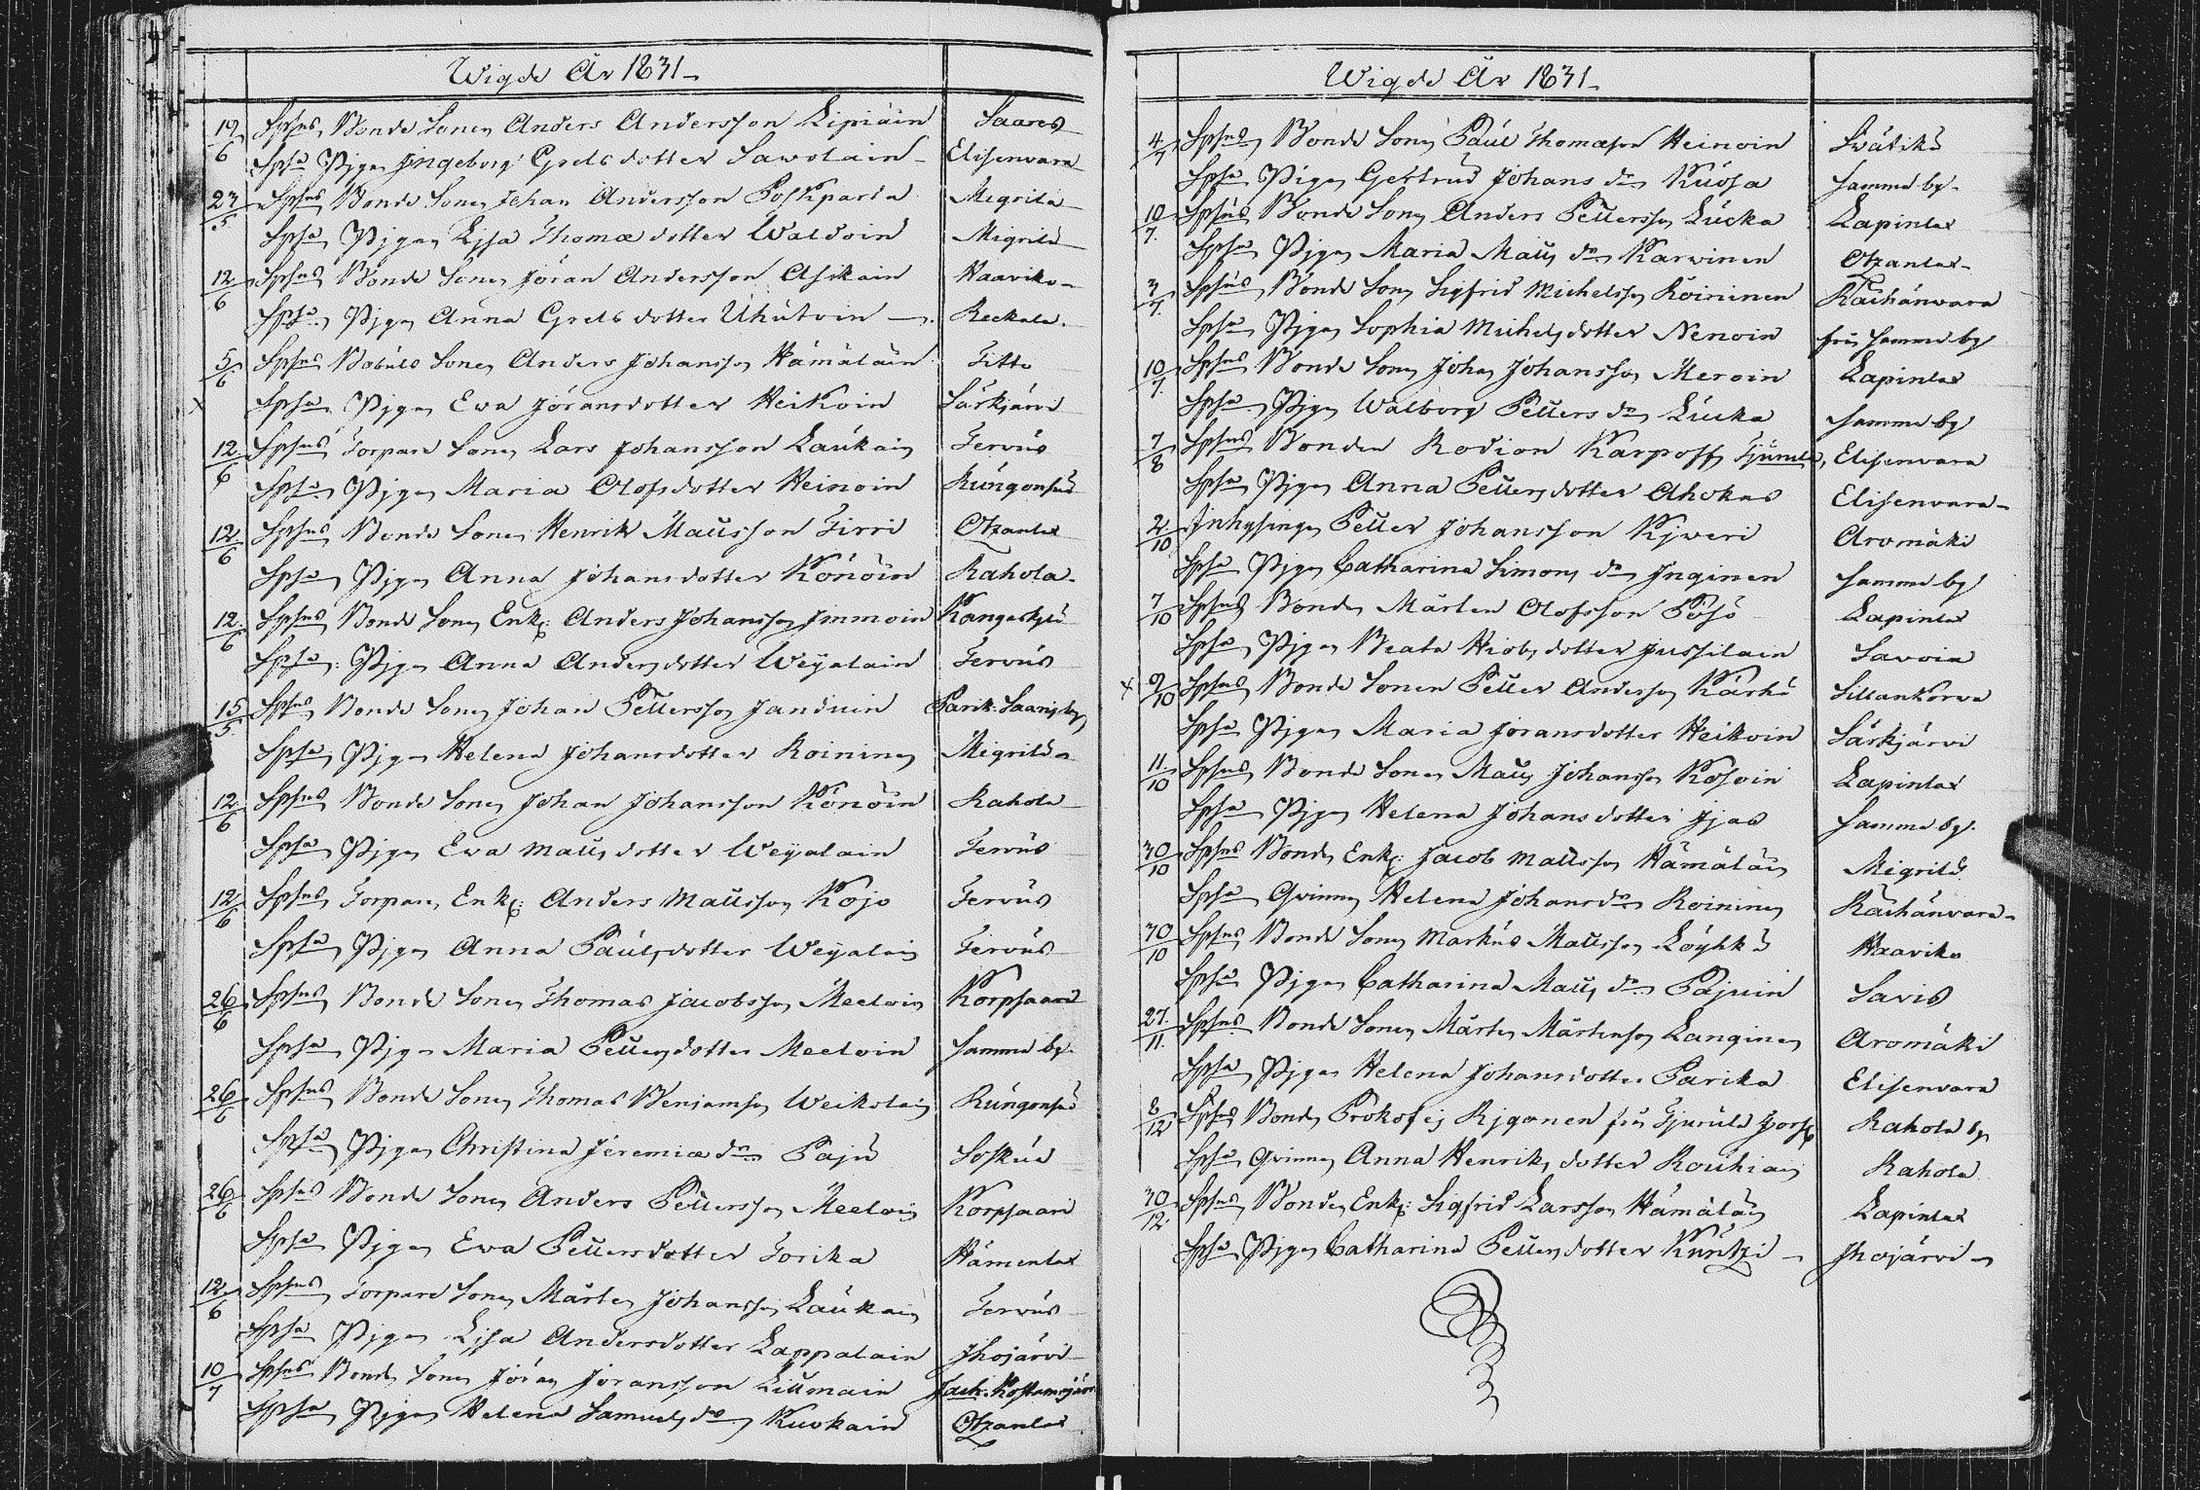 Wigde År 1831
19/6 Spsns Bonde Sonen Anders Andersson Lipiäin Saares
Spsa Pjgan Jngeborg Grelsdotter Sawolain Elisenvara
23/5 Spsns Bonde Sonen Johan Andersson Poskparta Megrilä
Spsa Pjgan Lisa Thomædotter Waldoin Migrilä
12/6 Spsns Bonde Sonen Jöran Andersson Asikain Haaviko
Spsa Pjgan Anna Grelsdotter Uhutoin Reekala
5/6 Spsns Bobuls Sonen Anders Johansson Hämäläin Titto
x Spsa Pjgan Ewa Jöransdotter Heikoin Särkjärvi
12/6 Spsns Torpare Sonen Lars Johansson Laukain Tervus
Spsa Pjgan Maria Olofsdotter Heinoin Rungonsuo
12/6 Spsns Bonde Sonen Henrik Mattsson Tirri Otzanlax
Spsa Pjgan Anna Johansdotter Könöin Rahola
12/6 Spsns Bonde Sonen Enkl: Anders Johansson Jmmoin Kangaskylä
Spsa Pjgan Anna Andersdotter Weyalain Tervus
15/5 Spsns Bonde Sonen Johan Pettersson Janduin Parik: Saaris by
Spsa Pjgan Helena Johansdotter Roininen Migrilä
12/6 Spsns Bonde Sonen Johan Johansson Könöin Rahola
Spsa Pjgan Ewa Mattsdotter Weyalain Tervus
12/6 Spsns Torparen Enkl: Anders Mattsson Kojo Tervus
Spsa Pjgan Anna Paulsdotter Weyalain Tervus
26/6 Spsns Bonde Sonen Thomas Jacobsson Meeloin Korpsaari
Spsa Pjgan Maria Pettersdotter Meeloin Samma by
26/6 Spsns Bonde Sonen Thomas Benjamson Weikolain Rungonsuo
Spsa Pjgan Christina Jeremiæ dr Paju Soskua
26/6 Spsns Bonde Sonen Anders Pettersson Meeloin Korpsaari
Spsa Pjgan Ewa Pettersdotter Torika Hämenlax
12/6 Spsns Torpare Sonen Mårten Johansson Laukain Tervus
Spsa Pjgan Lisa Andersdotter Lappalain Jhojärvi
10/7 Spsns Bonde Sonen Jöran Jöransson Littmain Jack: Kostamojärvi
Spsa Pjgan Helena Samuelsdr Kuokain Otzanlax
Wigde År 1831
4/7 Spsns Bonde Sonen Paul Thomæson Heinoin Svätikö
Spsa Pigan Gertrud Johans dr Kuosa Samma by
10/7 Spsns Bonde Sonen Anders Pettersson Lucka Lapinlax
Spsa Pjgan Maria Matts dr Karwinen Otzanlax
3/7 Spsns Bonde Sonen Sigfrid Michelsson Roininen Räihänvara
Spsa Pjgan Sophia Michelsdotter Nenoin från Samma by
10/7 Spsns Bonde Sonen Johan Johansson Meroin Lapinlax
Spsa Pjgan Walborg Petters dr Lucka Samma by
7/8 Spsns Bonden Rodion Karpoff Tjurula, Elisenvara
Spsa Pjgan Anna Pettersdotter Ahokas Elisenvara
2/10 Jnhysingen Petter Johansson Kjweri Aromäki
Spsa Pjgan Catharina Simons dr Jnginen Samma by
7/10 Spsns Bonden Mårten Olofsson Pösö Lapinlax
Spsa Pjgan Beata Hiobsdotter Jussilain Savoia
x 9/10 Spsns Bonde Sonen Petter Andersson Kärki Sillankorva
Spsa Pjgan Maria Jöransdotter Heikoin Särkjärvi
11/10 Spsns Bonde Sonen Matts Johansson Kosoin Lapinlax
Spsa Pjgan Helena Johansdotter Jjas Samma by
30/10 Spsns Bonden Enkl: Jacob Mattsson Hämäläin Migrilä
Spsa Qvinnan Helena Johansdr Roininen Räihänvara
30/10 Spsns Bonde Sonen Markus Mattsson Löyhkö Haaviko
Spsa Pjgan Catharina Matts dr Pajuin Savis
27/11 Spsns Bonde Sonen Mårten Mårtensson Langinen Aromäki
Spsa Pjgan Helena Johansdotter Parika Elisenvara
8/12 Spsns Bonden Prokofej Rjgonen från Tjurula Rahola by
Spsa Qvinnan Anna Henriks dotter Rouhiain Rahola
30/12 Spsns Bonden, Enkl: Sigfrid Larsson Hämäläin Lapinlax
Spsa Pjgan Catharina Pettersdotter Kuntzi Jhojärvi